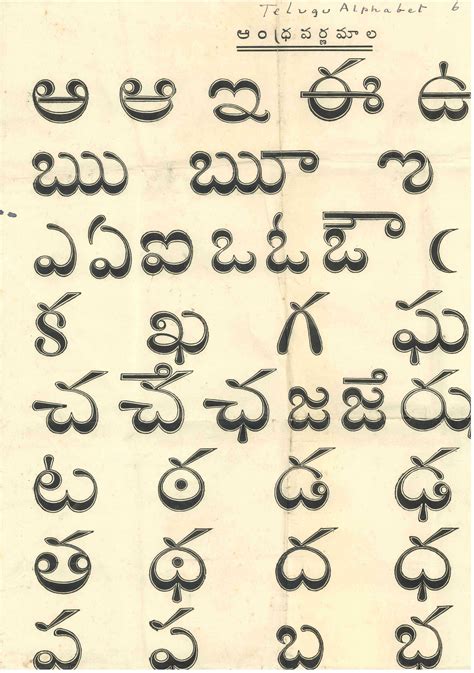 Telugu Alphabet 6
ఆంధ్రవర్ణమాల
అ ఆ ఇ ఈ ఉ
ఋ ౠ ఌ
ఎ ఏ ఐ ఒ ఓ ఔ
క ఖ గ ఘ
చ ౘ ఛ జ ౙ
ట ఠ డ ఢ
త థ ద ధ
ప ఫ బ భ